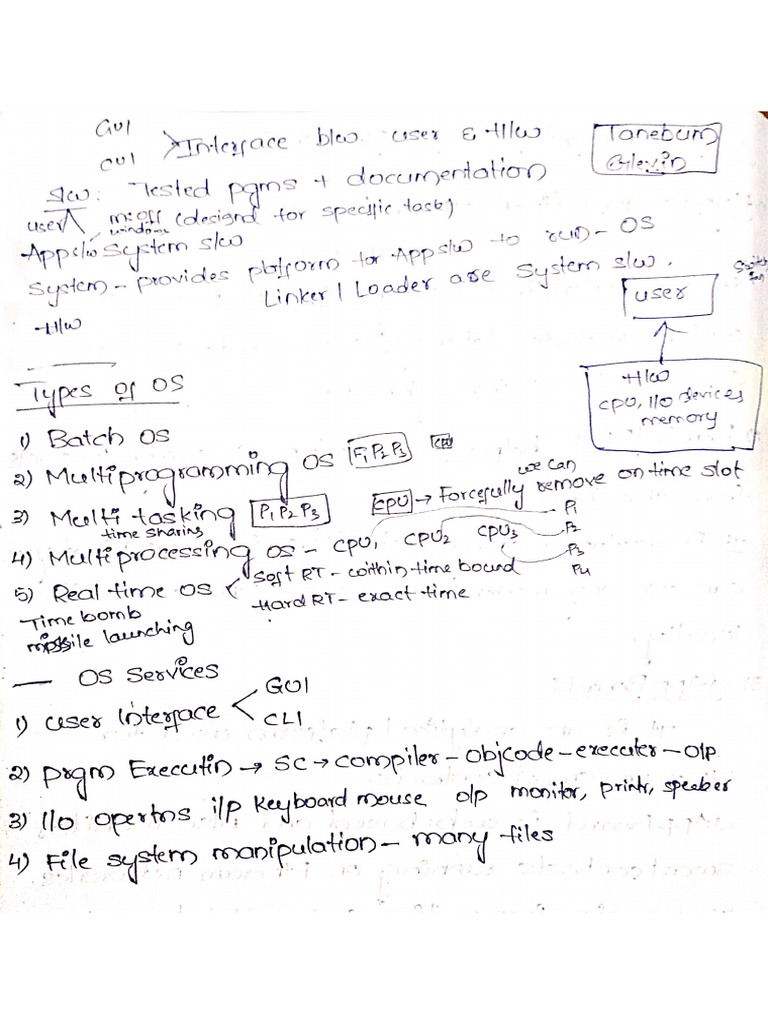 GUI
CUI
Interface b/w user & H/w
Tanebum
Galvin
S/w: Tested pgms + documentation
user
m:off (designd for specific task)
windows
App s/w System s/w
System - provides platform for App s/w to run - OS
Linker | Loader are System s/w.
H/w
user
H/w
CPU, I/O devices
memory
Types of OS
1) Batch OS
2) Multiprogramming OS P1 P2 P3 CPU
3) Multi tasking P1 P2 P3 CPU → Forcefully we can remove on time slot
time sharing
4) Multiprocessing OS - CPU1 CPU2 CPU3
P1
P2
P3
P4
5) Real time OS
Soft RT - within time bound
Hard RT - exact time
Time bomb
missile launching
OS Services
1) User Interface
GUI
CLI
2) Prgm Executin → SC → compiler - objcode - executer - O/P
3) I/O opertns i/p Keyboard mouse o/p monitor, printr, speeber
4) File system manipulation - many files